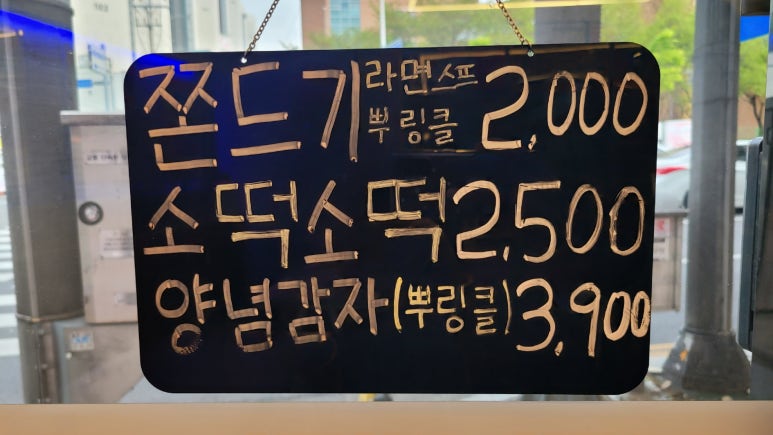 쫀드기 라면스프 2,000
뿌링클
소떡소떡 2,500
양념감자(뿌링클) 3,900